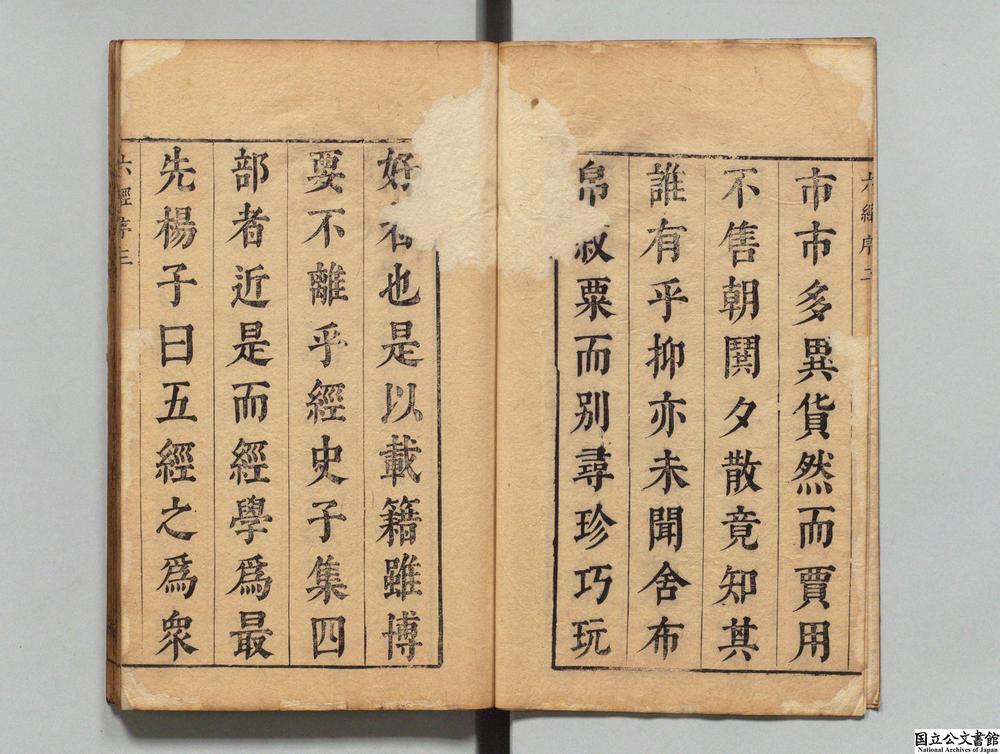 六經序二
市市多異貨然而賈用
不售朝鬨夕散竟知其
誰有乎抑亦未聞舍布
帛菽粟而別尋珍巧玩
好者也是以載籍雖博
要不離乎經史子集四
部者近是而經學爲最
先楊子曰五經之爲衆
六經序三
国立公文書館
National Archives of Japan